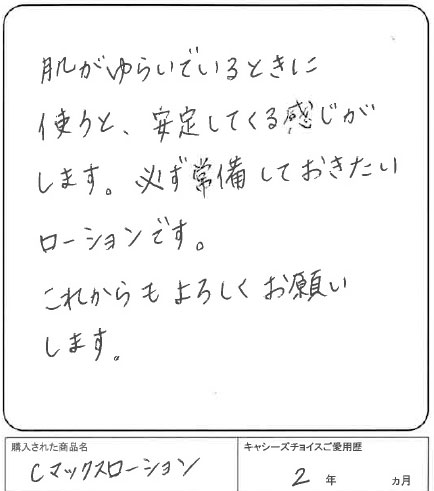 肌がゆらいでいるときに
使うと、安定してくる感じが
します。必ず常備しておきたい
ローションです。
これからもよろしくお願い
します。
購入された商品名
Cマックスローション
キャシーズチョイスご愛用歴
2 年 ヵ月